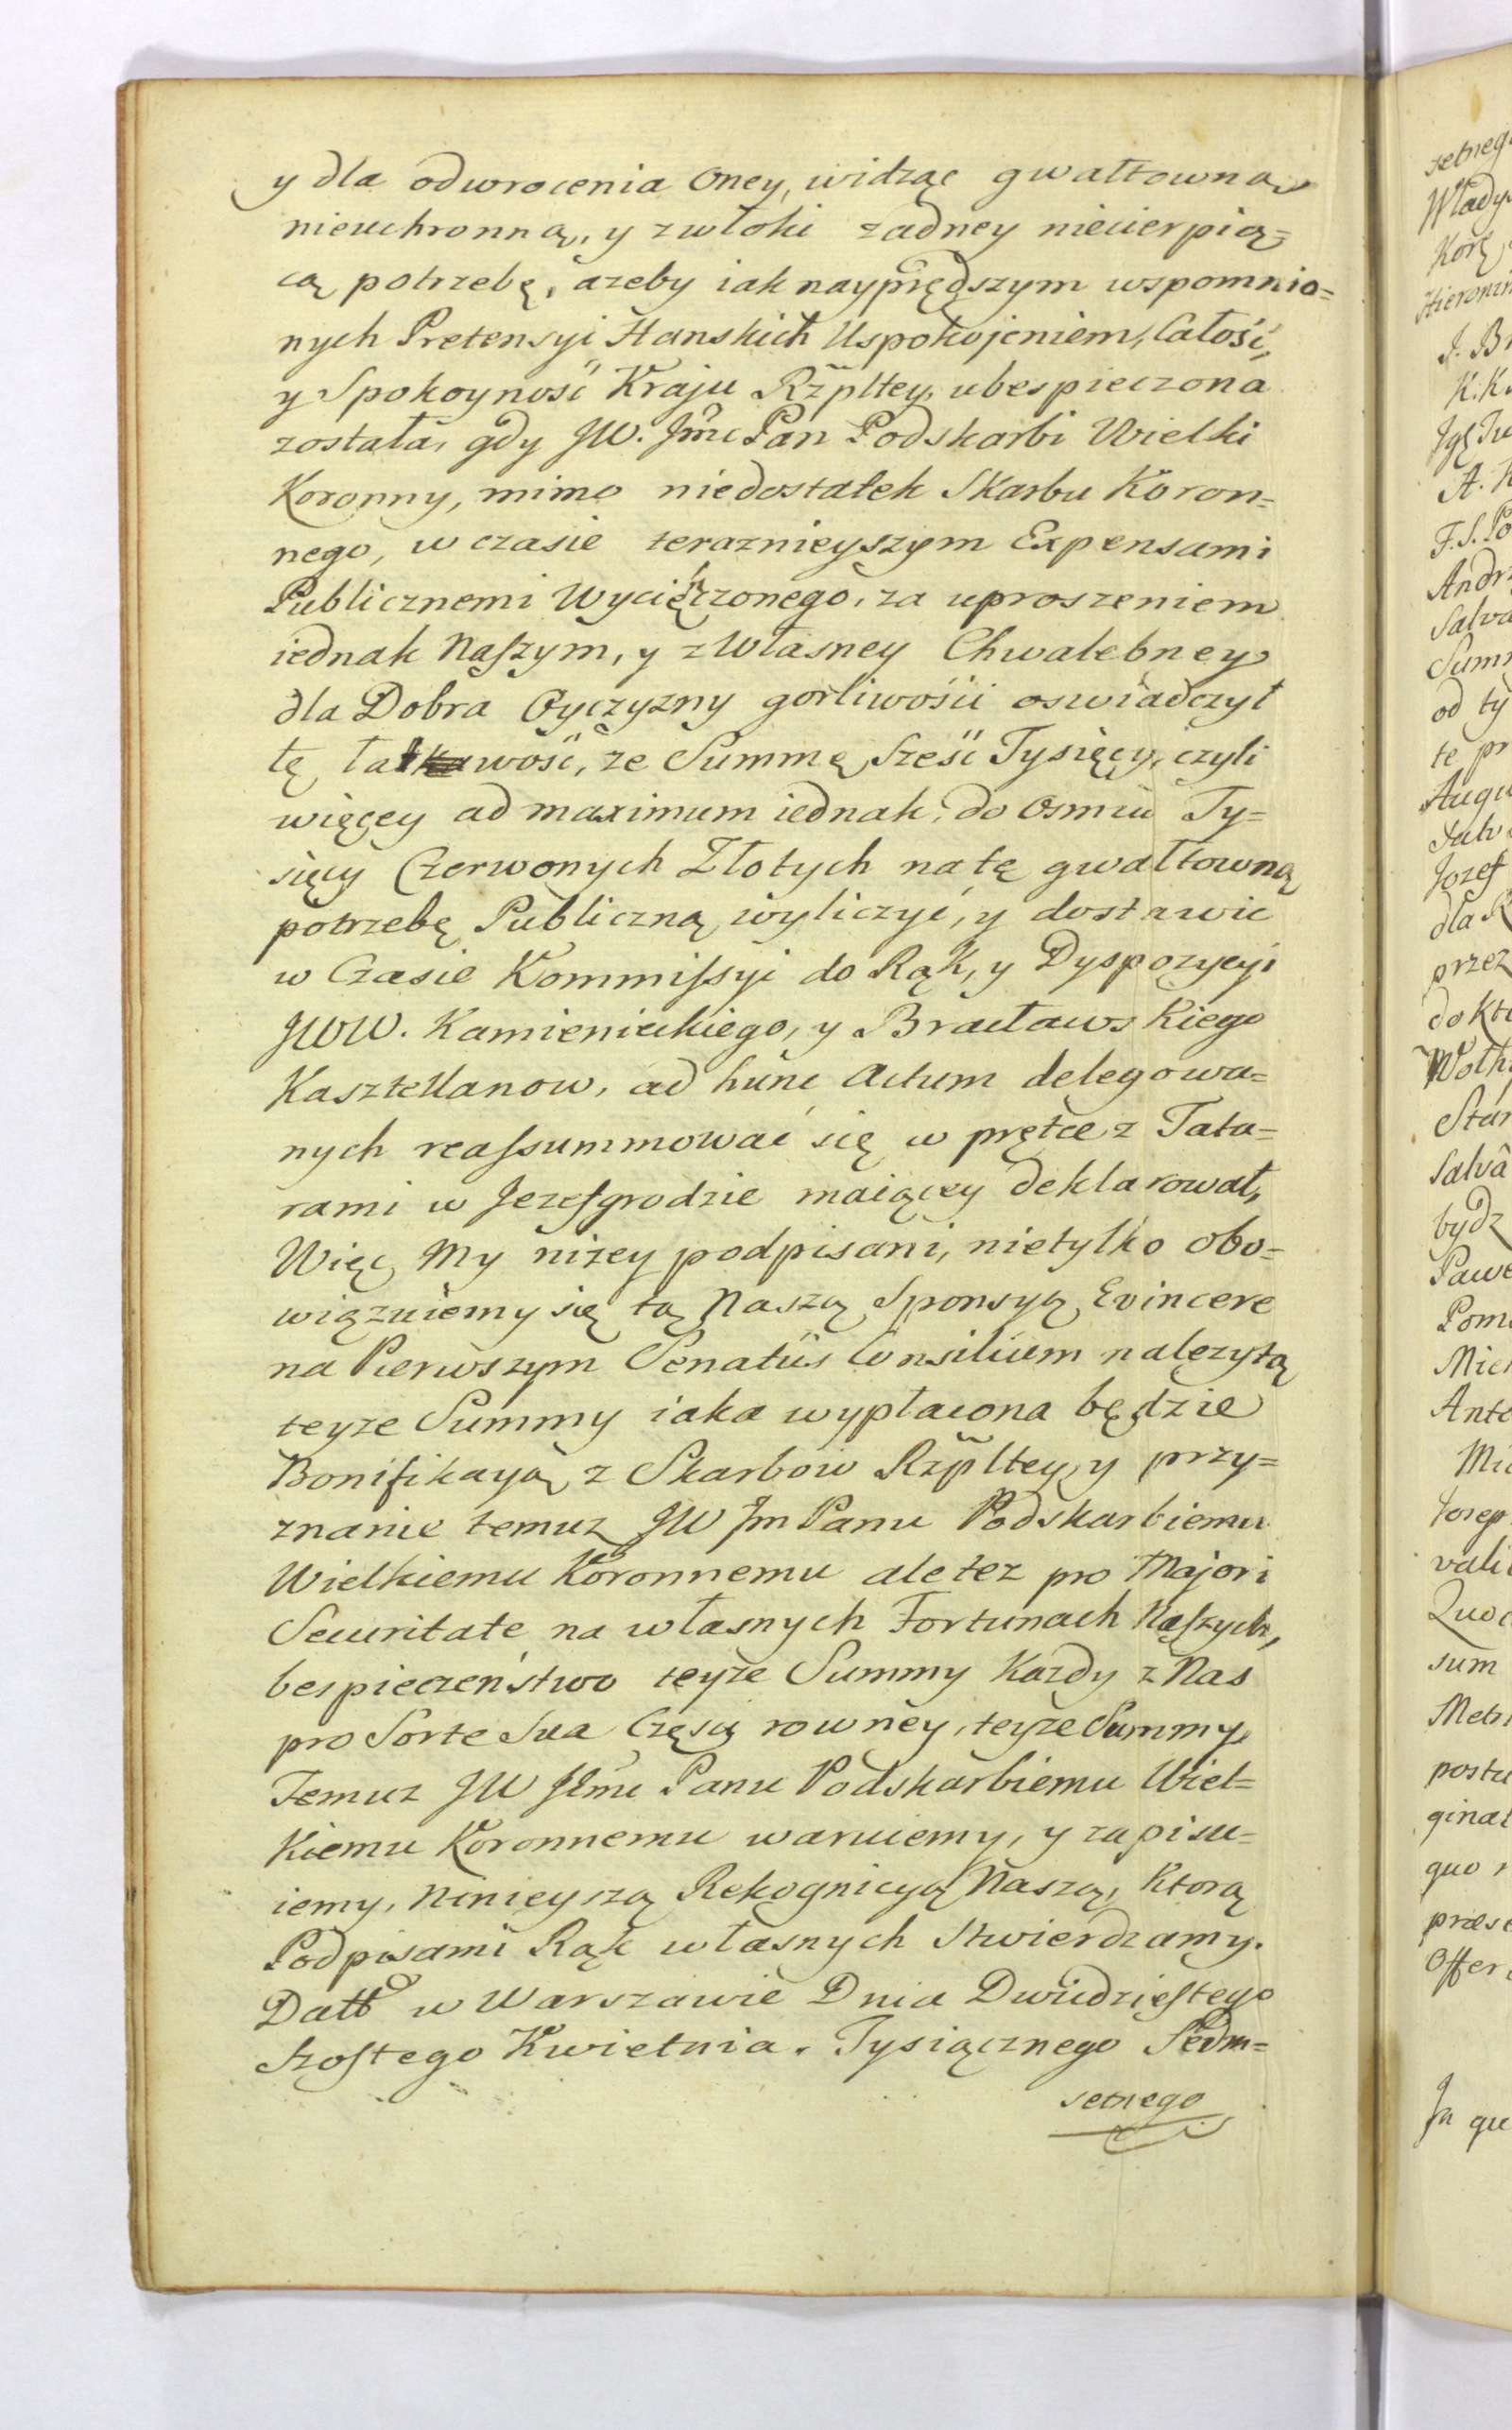 y dla odwrocenia Oney, widząc gwałtowną
nieuchronną, y zwłoki zadney niecierpią=
cą potrzebę, azeby iak nayprędszym wspomnio=
nych Pretensyi Hanskich Uspokojeniem, Całość,
y Spokoynosć Kraju Rzpltey, ubespieczona
została, gdy JW. Jmć Pan Podskarbi Wielki
Koronny, mimo niedostatek Skarbu Koron=
nego, w czasie teraznieyszym Expensami
Publicznemi Wycięczonego, za uproszeniem
iednak Naszym, y z Własney Chwalebney
dla Dobra Oyczyzny gorliwości oswiadczył
tę, łatwość, ze Summę Sześć Tysięcy, czyli
więcey ad maximum iednak, do Osmiu Ty=
sięcy Czerwonych Złotych na tę gwałtowną
potrzebę Publiczną wyliczyć, y dostawic
w Czasie Kommissyi do Rąk, y Dyspozycyi
JWW. Kamienieckiego, y Bracławskiego
Kasztellanow, ad hunc Actum delegowa=
nych reassummować się w prętce z Tata=
rami w Jezefgrodzie maiącey deklarował,
Więc My nizey podpisani, nietylko obo=
wiązuiemy się tą Naszą Sponsyą Evincere
na Pierwszym Senatûs Consilium nalezytą
teyze Summy iaka wypłacona będzie
Bonifikacyą, z Skarbow Rzpltey, y przy=
znanie temuz JW Jm Panu Podskarbiemu
Wielkiemu Koronnemu ale tez pro Majori
Securitate na własnych Fortunach Naszych,
bespieczeństwo teyze Summy Kazdy z Nas
pro Sorte Sua Częsią rowney, teyze Summy,
Temuz JW Jmć Panu Podskarbiemu Wiel=
kiemu Koronnemu waruiemy, y zapisu=
iemy, Ninieyszą Rekognicyą Naszą, Ktorą
Podpisami Rąk własnych Stwierdzamy.
Datt w Warszawie Dnia Dwudziestego
Szostego Kwietnia. Tysiącznego Sedm=
setnego
setneg
Władys
Kor
Hieronim
J. Br
K. K
A. K
F. S. Po
Andrz
Salva
Summ
od ty
te pr
Augu
Jozef
dla R
przez
do kto
Wołk
Stan
Salvâ
bydz
Pawe
Pom
Mich
Anto
Mic
Josep
vali
Quo
sum
Metr
postu
ginal
quo r
præse
Offer
In qu